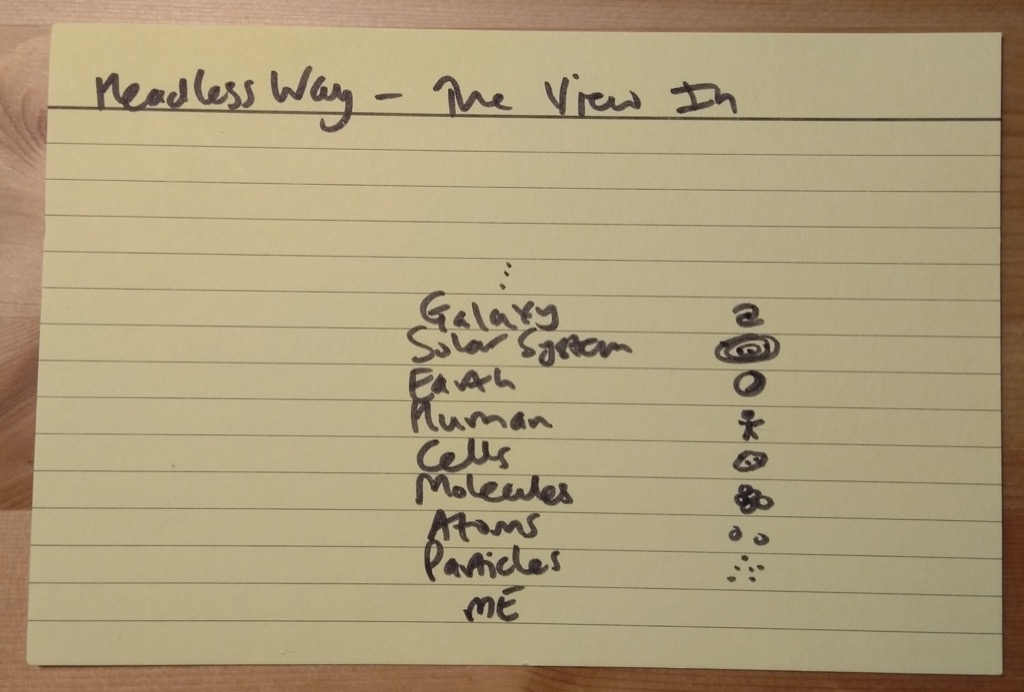 Headless Way - The View In
⋮
Galaxy
Solar System
Earth
Human
Cells
Molecules
Atoms
Particles
ME